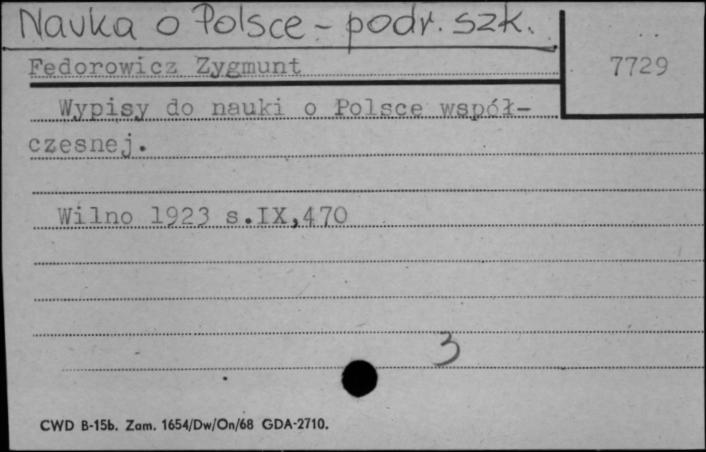 Nauka o Polsce - podr. szk.
Fedorowicz Zygmunt
7729
Wypisy do nauki o Polsce współ-
czesnej.
Wilno 1923 s.IX,470
3
CWD B-15b. Zam. 1654/Dw/On/68 GDA-2710.